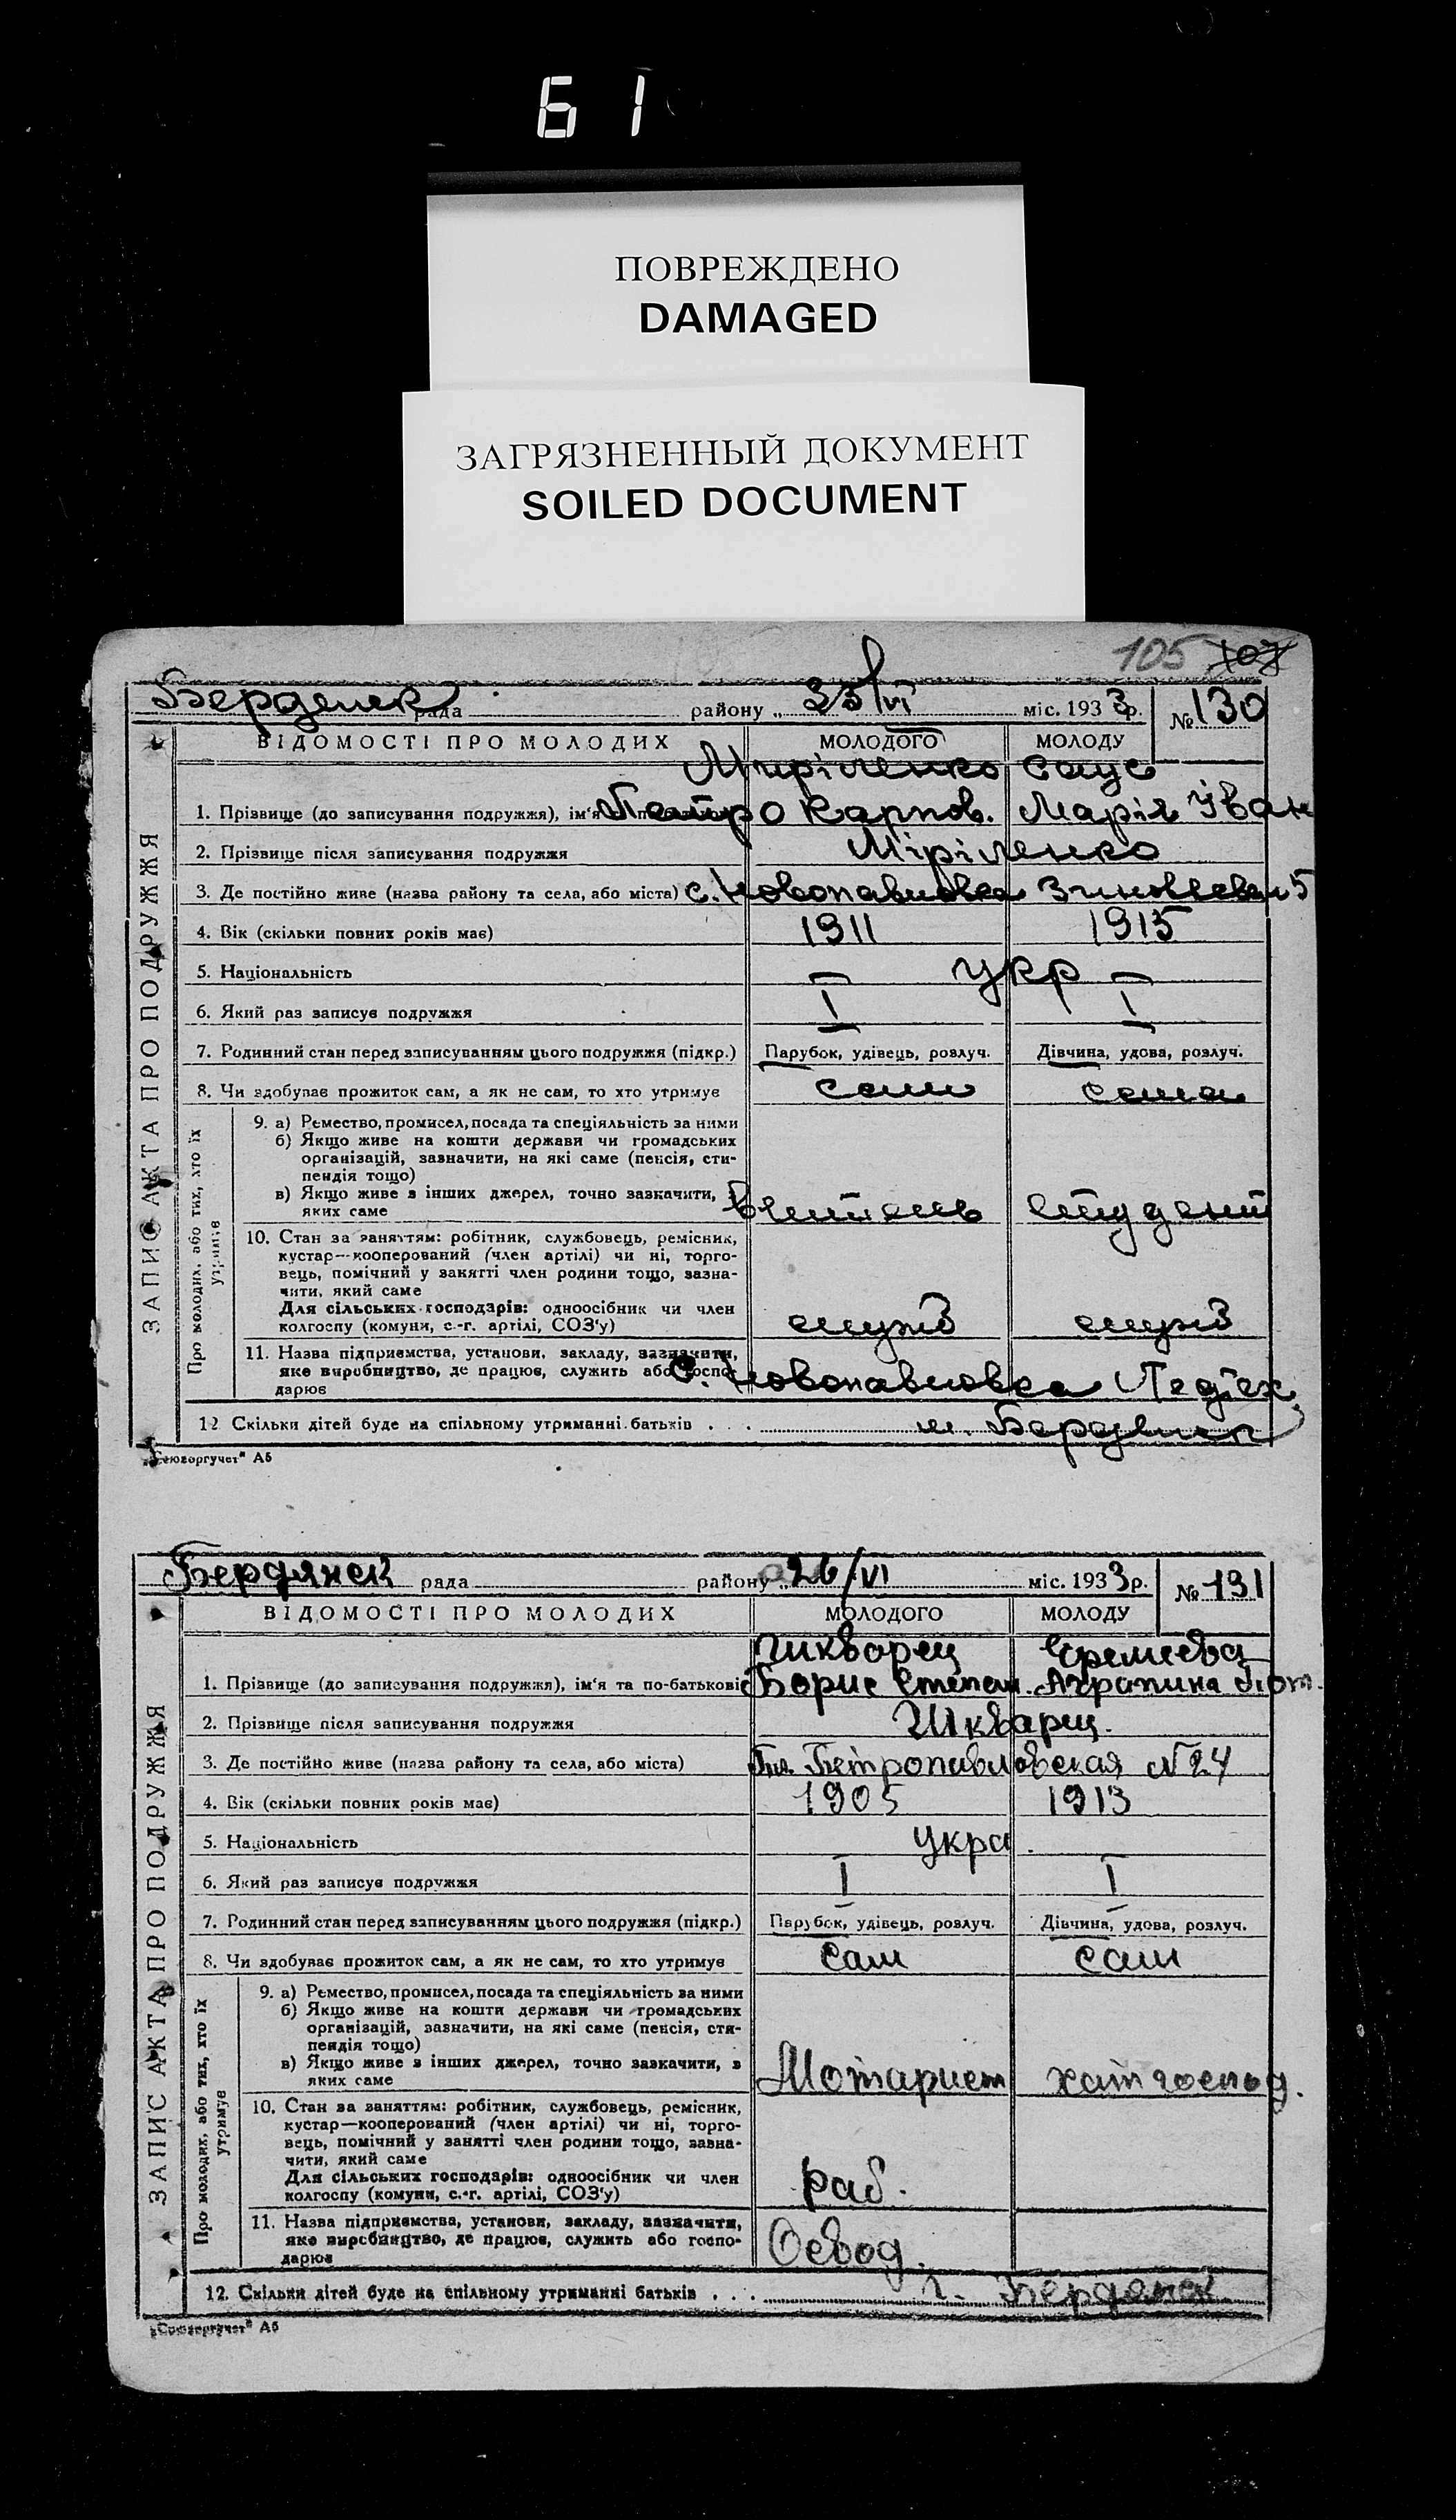 61
ПОВРЕЖДЕНО
DAMAGED
ЗАГРЯЗНЕННЫЙ ДОКУМЕНТ
SOILED DOCUMENT
105 107
Бердянск рада району „25/VI міс. 1933р. №130
ВІДОМОСТІ ПРО МОЛОДИХ МОЛОДОГО МОЛОДУ
ЗАПИС АКТА ПРО ПОДРУЖЖЯ
Миріленко
1. Прізвище (до записування подружжя), ім'я Петро Карпов. Марія Іван
2. Прізвище після записування подружжя Міріленко
3. Де постійно живе (назва району та села, або міста) с. Новопавловка
4. Вік (скільки повних років має) 1911 1915
5. Національність укр
6. Який раз записує подружжя I I
7. Родинний стан перед записуванням цього подружжя (підкр.) Парубок, удівець, розлуч. Дівчина, удова, розлуч.
8. Чи здобуває прожиток сам, а як не сам, то хто утримує сам сама
Про молодих, або тих, хто їх утримує
9. а) Ремество, промисел, посада та спеціяльність за ними
б) Якщо живе на кошти держави чи громадських
організацій, зазначити, на які саме (пенсія, сти-
пендія тощо)
в) Якщо живе з інших джерел, точно зазначити,
яких саме студент
10. Стан за заняттям: робітник, службовець, ремісник,
кустар—кооперований (член артілі) чи ні, торго-
вець, помічний у занятті член родини тощо, зазна-
чити, який саме
Для сільських господарів: одноосібник чи член
колгоспу (комуни, с.-г. артілі, СОЗ'у) служб служб
11. Назва підприємства, установи, закладу, зазначити,
яке виробництво, де працює, служить або госпо-
дарює с. Новопавловка Педтех.
12 Скільки дітей буде на спільному утриманні батьків . . . м. Бердянск
„Союзоргучет" А5
Бердянск рада району „26/VI міс. 1933р. №131
ВІДОМОСТІ ПРО МОЛОДИХ МОЛОДОГО МОЛОДУ
ЗАПИС АКТА ПРО ПОДРУЖЖЯ
Шкварец Еремеева
1. Прізвище (до записування подружжя), ім'я та по-батькові Борис Степан. Аграпина
2. Прізвище після записування подружжя Шкварец.
3. Де постійно живе (назва району та села, або міста) Петропавловская №24
4. Вік (скільки повних років має) 1905 1913
5. Національність укра.
6. Який раз записує подружжя I I
7. Родинний стан перед записуванням цього подружжя (підкр.) Парубок, удівець, розлуч. Дівчина, удова, розлуч.
8. Чи здобуває прожиток сам, а як не сам, то хто утримує сам сам
Про молодих, або тих, хто їх утримує
9. а) Ремество, промисел, посада та спеціяльність за ними
б) Якщо живе на кошти держави чи громадських
організацій, зазначити, на які саме (пенсія, сти-
пендія тощо)
в) Якщо живе з інших джерел, точно зазначити, з
яких саме Мотарист хатгоспод.
10. Стан за заняттям: робітник, службовець, ремісник,
кустар—кооперований (член артілі) чи ні, торго-
вець, помічний у занятті член родини тощо, зазна-
чити, який саме
Для сільських господарів: одноосібник чи член
колгоспу (комуни, с.-г. артілі, СОЗ'у) раб.
11. Назва підприємства, установи, закладу, зазначити,
яке виробництво, де працює, служить або госпо-
дарює Освод.
12. Скільки дітей буде на спільному утриманні батьків . . . г. Бердянск
„Союзоргучет" А5